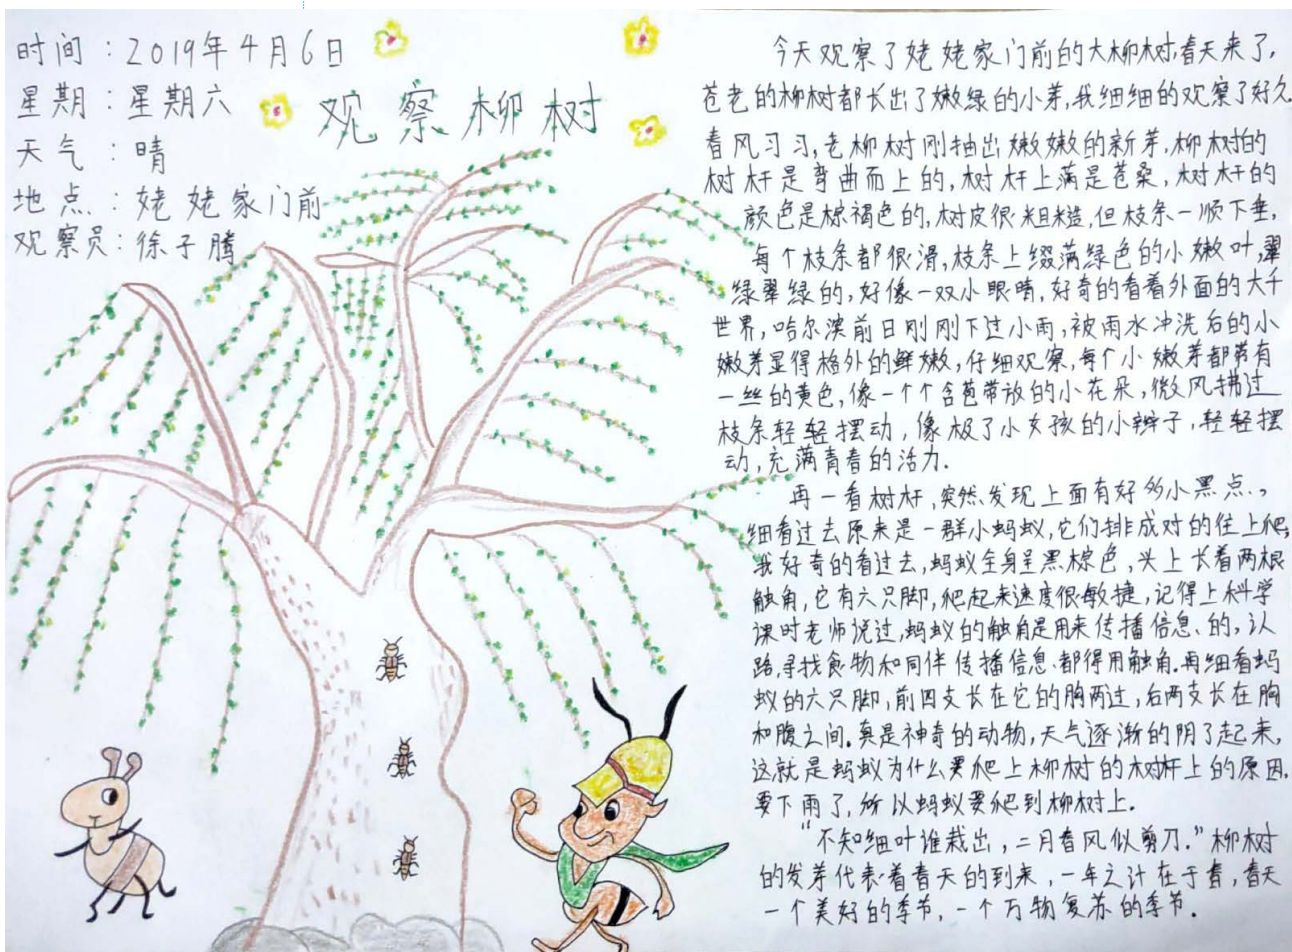 时间：2019年4月6日
星期：星期六
天气：晴
地点：姥姥家门前
观察员：徐子腾
观察柳树
今天观察了姥姥家门前的大柳树，春天来了，
苍老的柳树都长出了嫩绿的小芽，我细细的观察了好久
春风习习，老柳树刚抽出嫩嫩的新芽，柳树的
树杆是弯曲而上的，树杆上满是苍桑，树杆的
颜色是棕褐色的，树皮很粗糙，但枝条一顺下垂，
每个枝条都很滑，枝条上缀满绿色的小嫩叶，翠
绿翠绿的，好像一双小眼睛，好奇的看着外面的大千
世界，哈尔滨前日刚刚下过小雨，被雨水冲洗后的小
嫩芽显得格外的鲜嫩，仔细观察，每个小嫩芽都带有
一丝的黄色，像一个个含苞带放的小花朵，微风拂过
枝条轻轻摆动，像极了小女孩的小辫子，轻轻摆
动，充满青春的活力.
再一看树杆，突然发现上面有好多小黑点，
细看过去原来是一群小蚂蚁，它们排成对的往上爬，
我好奇的看过去，蚂蚁全身呈黑棕色，头上长着两根
触角，它有六只脚，爬起来速度很敏捷，记得上科学
课时老师说过，蚂蚁的触角是用来传播信息的，认
路，寻找食物和同伴传播信息都得用触角.再细看蚂
蚁的六只脚，前四支长在它的胸两过，后两支长在胸
和腹之间.真是神奇的动物，天气逐渐的阴了起来，
这就是蚂蚁为什么要爬上柳树的树杆上的原因.
要下雨了，所以蚂蚁要爬到柳树上.
“不知细叶谁裁出，二月春风似剪刀.”柳树
的发芽代表着春天的到来，一年之计在于春，春天
一个美好的季节，一个万物复苏的季节.